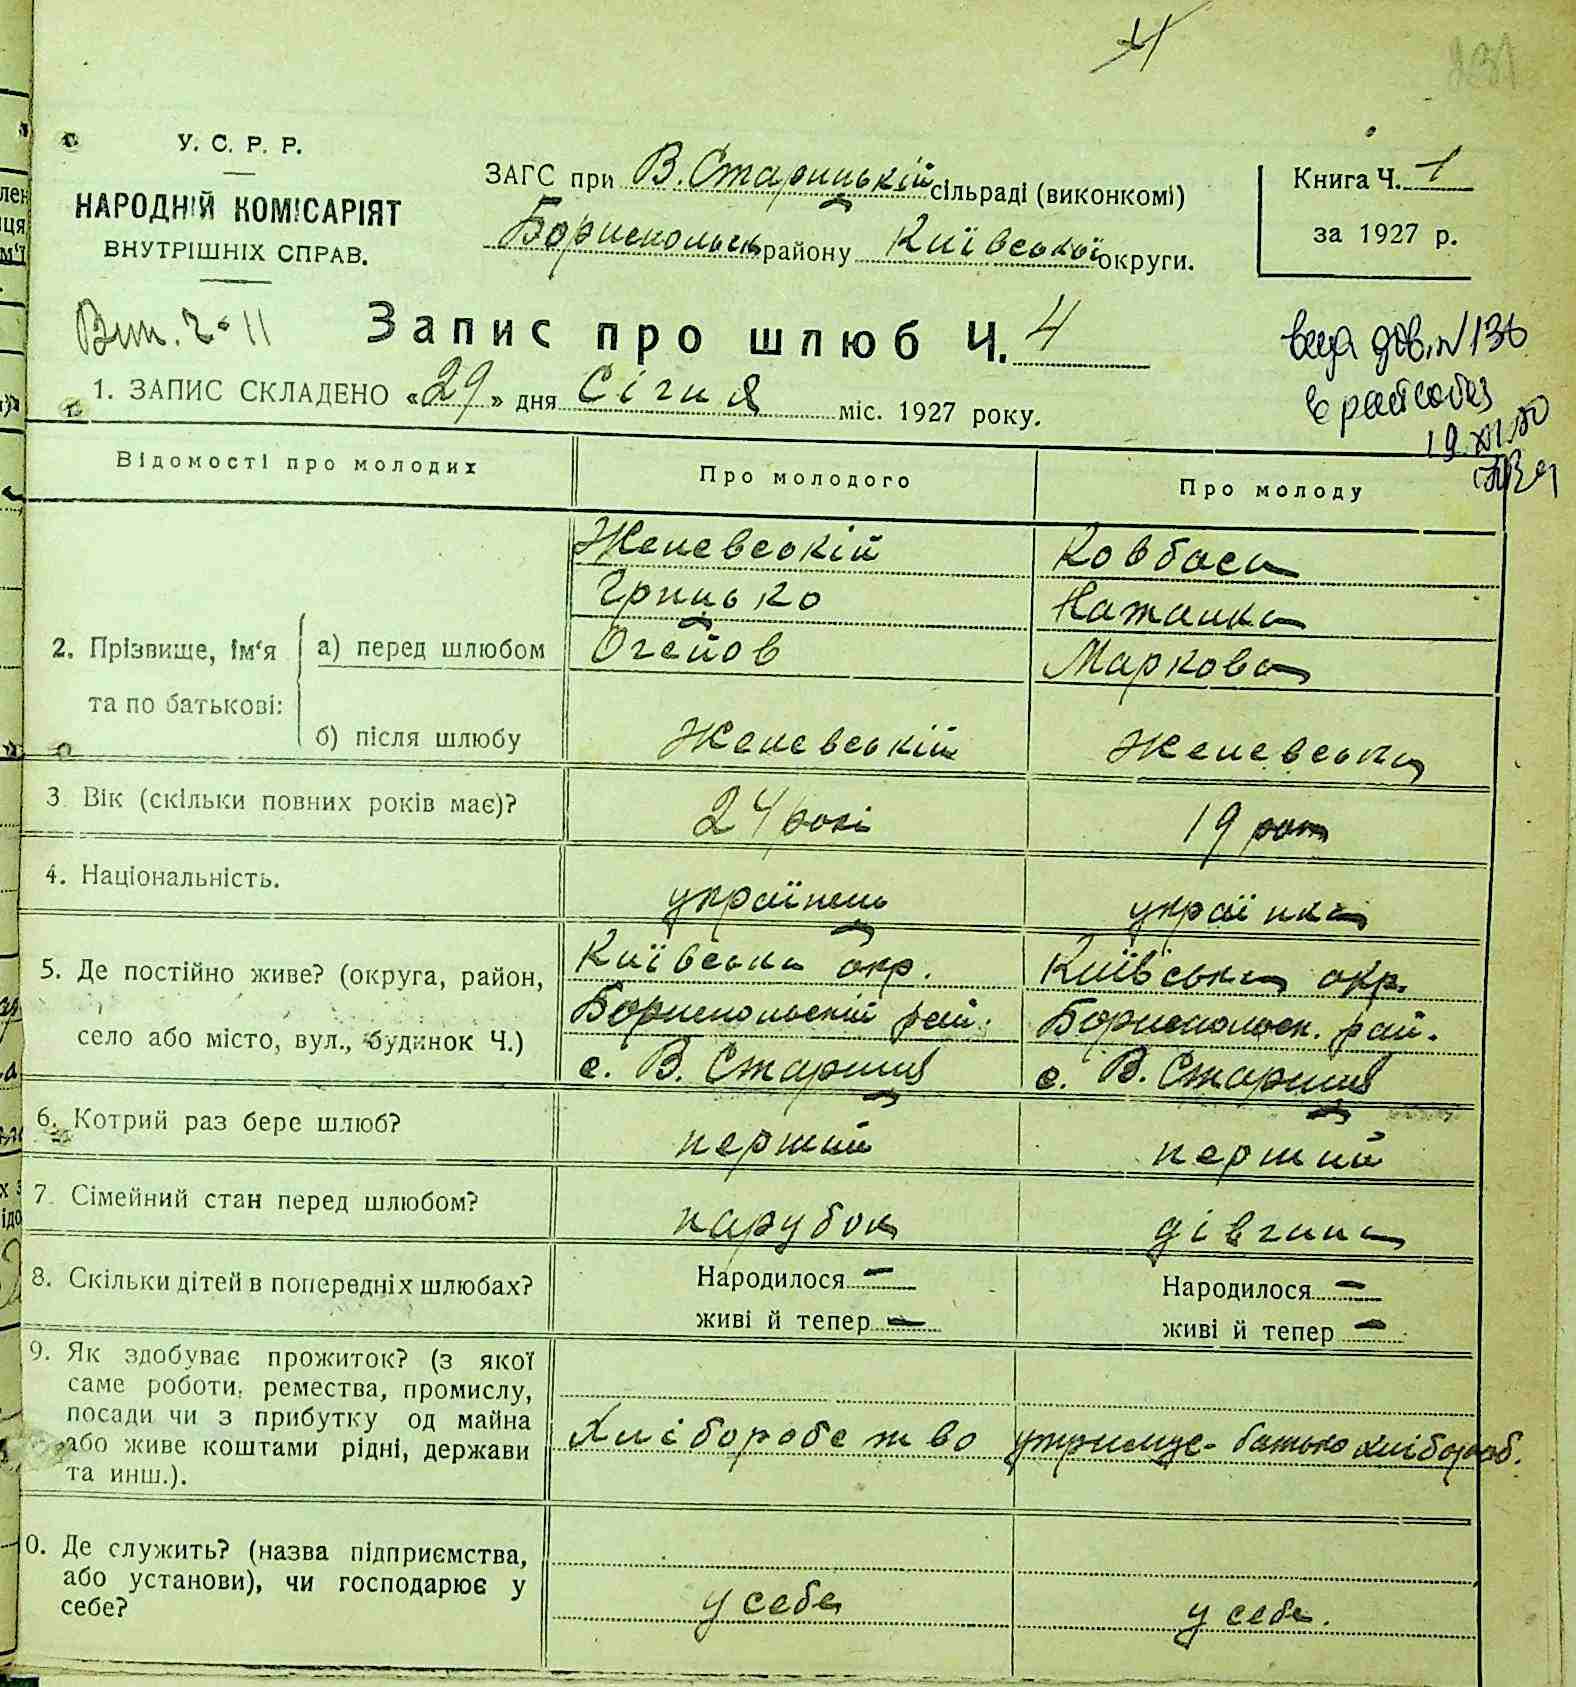 231
У. С. Р. Р.
НАРОДНІЙ КОМІСАРІЯТ
ВНУТРІШНІХ СПРАВ.
ЗАГС при В. Старицькій сільраді (виконкомі)
Бориспольськ району Київської округи.
Книга Ч. 1
за 1927 р.
Вит. 2-11
Запис про шлюб Ч. 4
вида дов. N 136
в райсобез
19 XI 50
1. ЗАПИС СКЛАДЕНО «29» дня Січня міс. 1927 року.
Відомості про молодих
Про молодого
Про молоду
2. Прізвище, ім‘я та по батькові:
а) перед шлюбом
Женевській
Грицько
Огейов
Ковбаса
Наталка
Маркова
б) після шлюбу
Женевській
Женевська
3. Вік (скільки повних років має)?
24 роки
19 рот
4. Національність.
українець
українка
5. Де постійно живе? (округа, район,
село або місто, вул., будинок Ч.)
Київська окр.
Бориспольскій рай.
с. В. Стариця
Київська окр.
Борисполськ. рай.
с. В. Стариця
6. Котрий раз бере шлюб?
перший
перший
7. Сімейний стан перед шлюбом?
парубок
дівчина
8. Скільки дітей в попередніх шлюбах?
Народилося —
живі й тепер —
Народилося —
живі й тепер —
9. Як здобуває прожиток? (з якої
саме роботи, ремества, промислу,
посади чи з прибутку од майна
або живе коштами рідні, держави
та инш.).
Хліборобство
утримує - батько хлібороб.
0. Де служить? (назва підприємства,
або установи), чи господарює у
себе?
у себе
у себе.